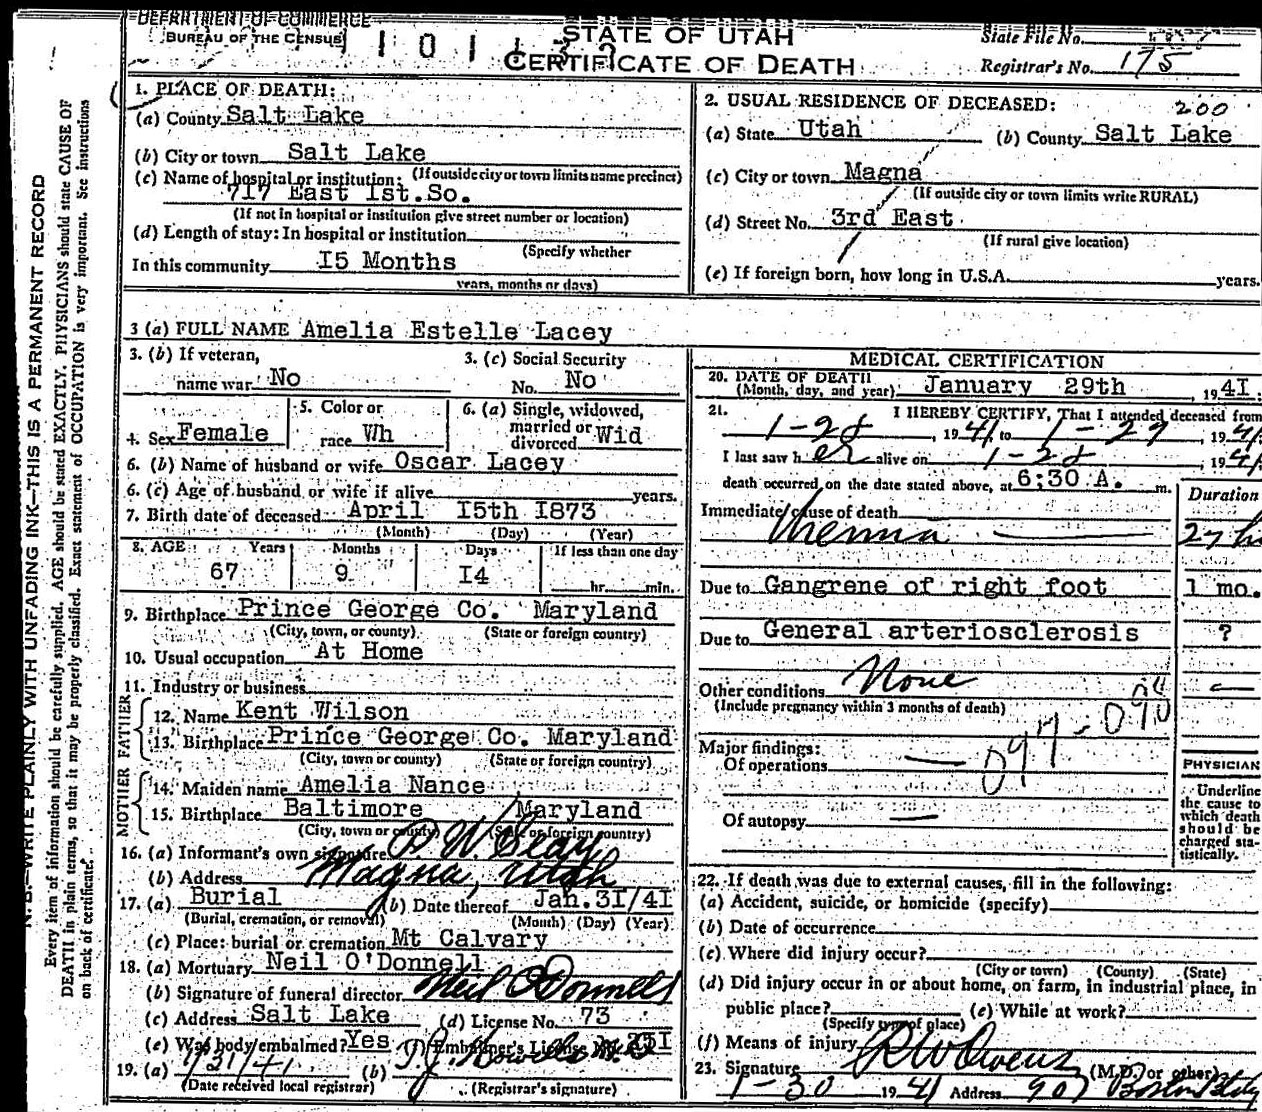 DEPARTMENT OF COMMERCE
BUREAU OF THE CENSUS
STATE OF UTAH
CERTIFICATE OF DEATH
State File No.
Registrar's No. 175
N. B.—WRITE PLAINLY WITH UNFADING INK—THIS IS A PERMANENT RECORD
Every item of information should be carefully supplied. AGE should be stated EXACTLY. PHYSICIANS should state CAUSE OF
DEATH in plain terms, so that it may be properly classified. Exact statement of OCCUPATION is very important. See instructions
on back of certificate.
1. PLACE OF DEATH:
(a) County Salt Lake
(b) City or town Salt Lake
(If outside city or town limits name precinct)
(c) Name of hospital or institution:
717 East Ist.So.
(If not in hospital or institution give street number or location)
(d) Length of stay: In hospital or institution
(Specify whether
In this community I5 Months
years, months or days)
2. USUAL RESIDENCE OF DECEASED: 200
(a) State Utah (b) County Salt Lake
(c) City or town Magna
(If outside city or town limits write RURAL)
(d) Street No. 3rd East
(If rural give location)
(e) If foreign born, how long in U.S.A. years.
3 (a) FULL NAME Amelia Estelle Lacey
3. (b) If veteran, name war No
3. (c) Social Security No. No
4. Sex Female
5. Color or race Wh
6. (a) Single, widowed, married or divorced Wid
6. (b) Name of husband or wife Oscar Lacey
6. (c) Age of husband or wife if alive years.
7. Birth date of deceased April I5th I873
(Month) (Day) (Year)
8. AGE Years Months Days If less than one day
67 9 I4 hr. min.
9. Birthplace Prince George Co. Maryland
(City, town, or county) (State or foreign country)
10. Usual occupation At Home
11. Industry or business
FATHER
12. Name Kent Wilson
13. Birthplace Prince George Co. Maryland
(City, town or county) (State or foreign country)
MOTHER
14. Maiden name Amelia Nance
15. Birthplace Baltimore Maryland
(City, town or county) (State or foreign country)
16. (a) Informant's own signature
(b) Address Magna, Utah
17. (a) Burial (b) Date thereof Jan.3I/4I
(Burial, cremation, or removal) (Month) (Day) (Year)
(c) Place: burial or cremation Mt Calvary
18. (a) Mortuary Neil O'Donnell
(b) Signature of funeral director Neil O'Donnell
(c) Address Salt Lake (d) License No. 73
(e) Was body embalmed? Yes Embalmer's License No.
19. (a) 1/31/41 (b)
(Date received local registrar) (Registrar's signature)
MEDICAL CERTIFICATION
20. DATE OF DEATH
(Month, day, and year) January 29th, 194I.
21. I HEREBY CERTIFY, That I attended deceased from
1-28, 1941, to 1-29, 1941
I last saw her alive on 1-28, 1941
death occurred on the date stated above, at 6:30 A. m.
Duration
Immediate cause of death
Due to Gangrene of right foot 1 mo.
Due to General arteriosclerosis ?
Other conditions None
(Include pregnancy within 3 months of death)
Major findings:
Of operations 097-090
Of autopsy
PHYSICIAN
Underline
the cause to
which death
should be
charged sta-
tistically.
22. If death was due to external causes, fill in the following:
(a) Accident, suicide, or homicide (specify)
(b) Date of occurrence
(c) Where did injury occur?
(City or town) (County) (State)
(d) Did injury occur in or about home, on farm, in industrial place, in
public place? (e) While at work?
(Specify type of place)
(f) Means of injury
23. Signature R W Owens (M.D. or other)
1-30 1941 Address 907 Boston Bldg